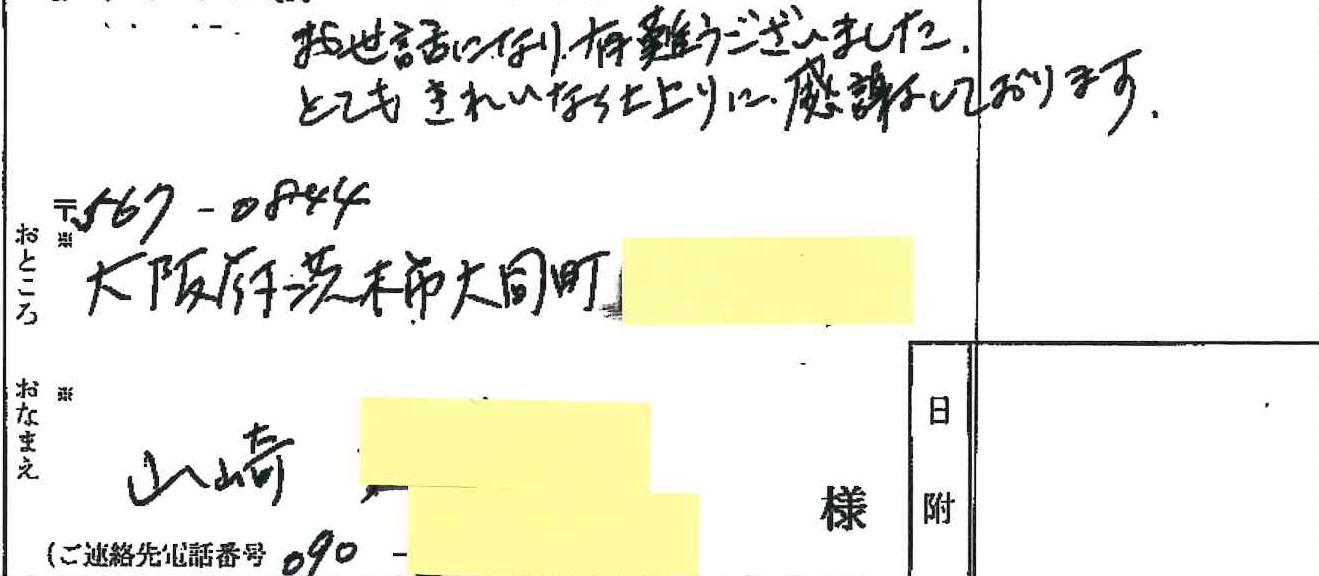 お世話になり、有難うございました。
とてもきれいな仕上りに、感謝しております。
〒567-0844
おところ
※
大阪府茨木市大同町
おなまえ
※
山崎
様
日附
(ご連絡先電話番号 090 -